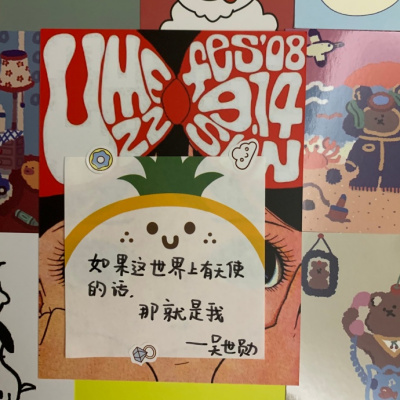 UMEZZ
fes'08
9.14
SUN
如果这世界上有天使
的话,
那就是我
—吴世勋